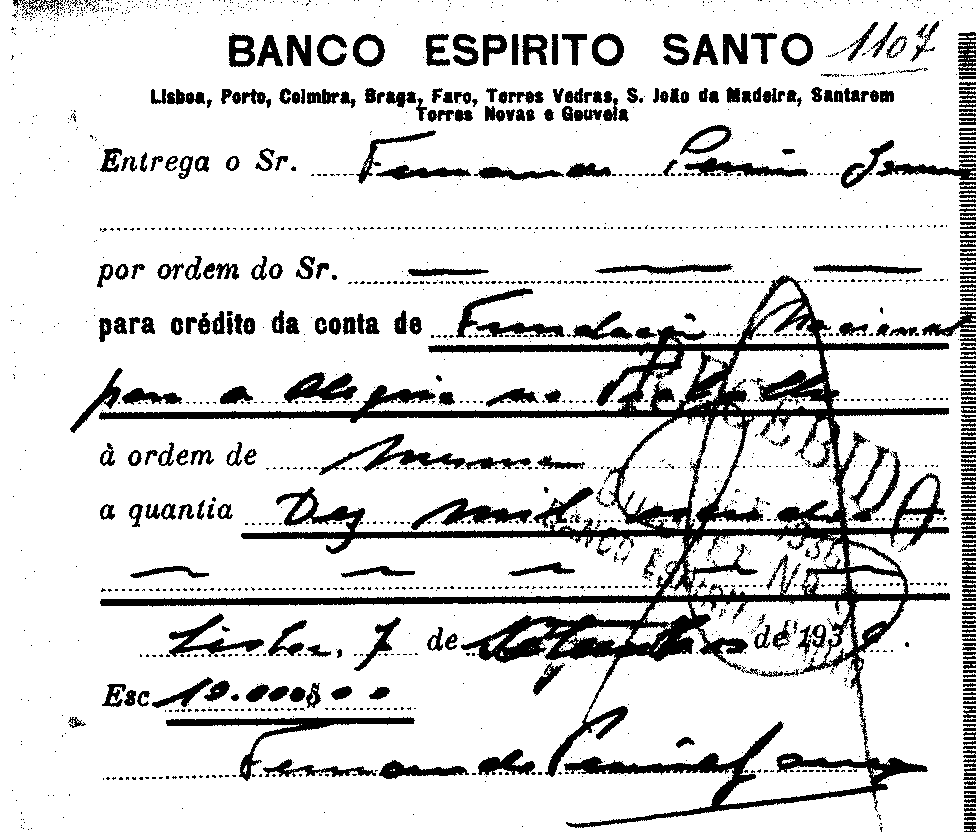 BANCO ESPIRITO SANTO 1107
Lisboa, Porto, Coimbra, Braga, Faro, Torres Vedras, S. João da Madeira, Santarem
Torres Novas e Gouveia
Entrega o Sr. Fernando
por ordem do Sr.
para crédito da conta de Fundação Nacional
para a Alegria no Trabalho
à ordem de mesma
a quantia Dez mil escudos
RECEBIDA
Lisboa, 7 de de 193
Esc 10.000$00
Fernando